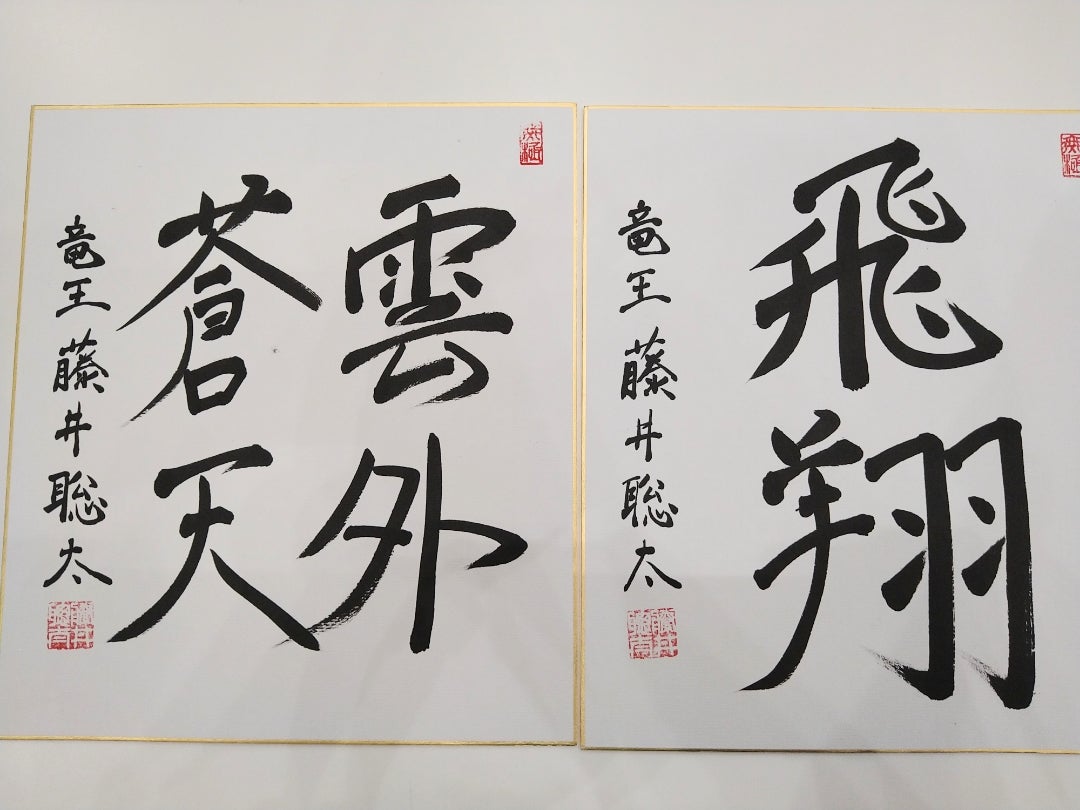 飛翔
竜王 藤井聡太
雲外
蒼天
竜王 藤井聡太